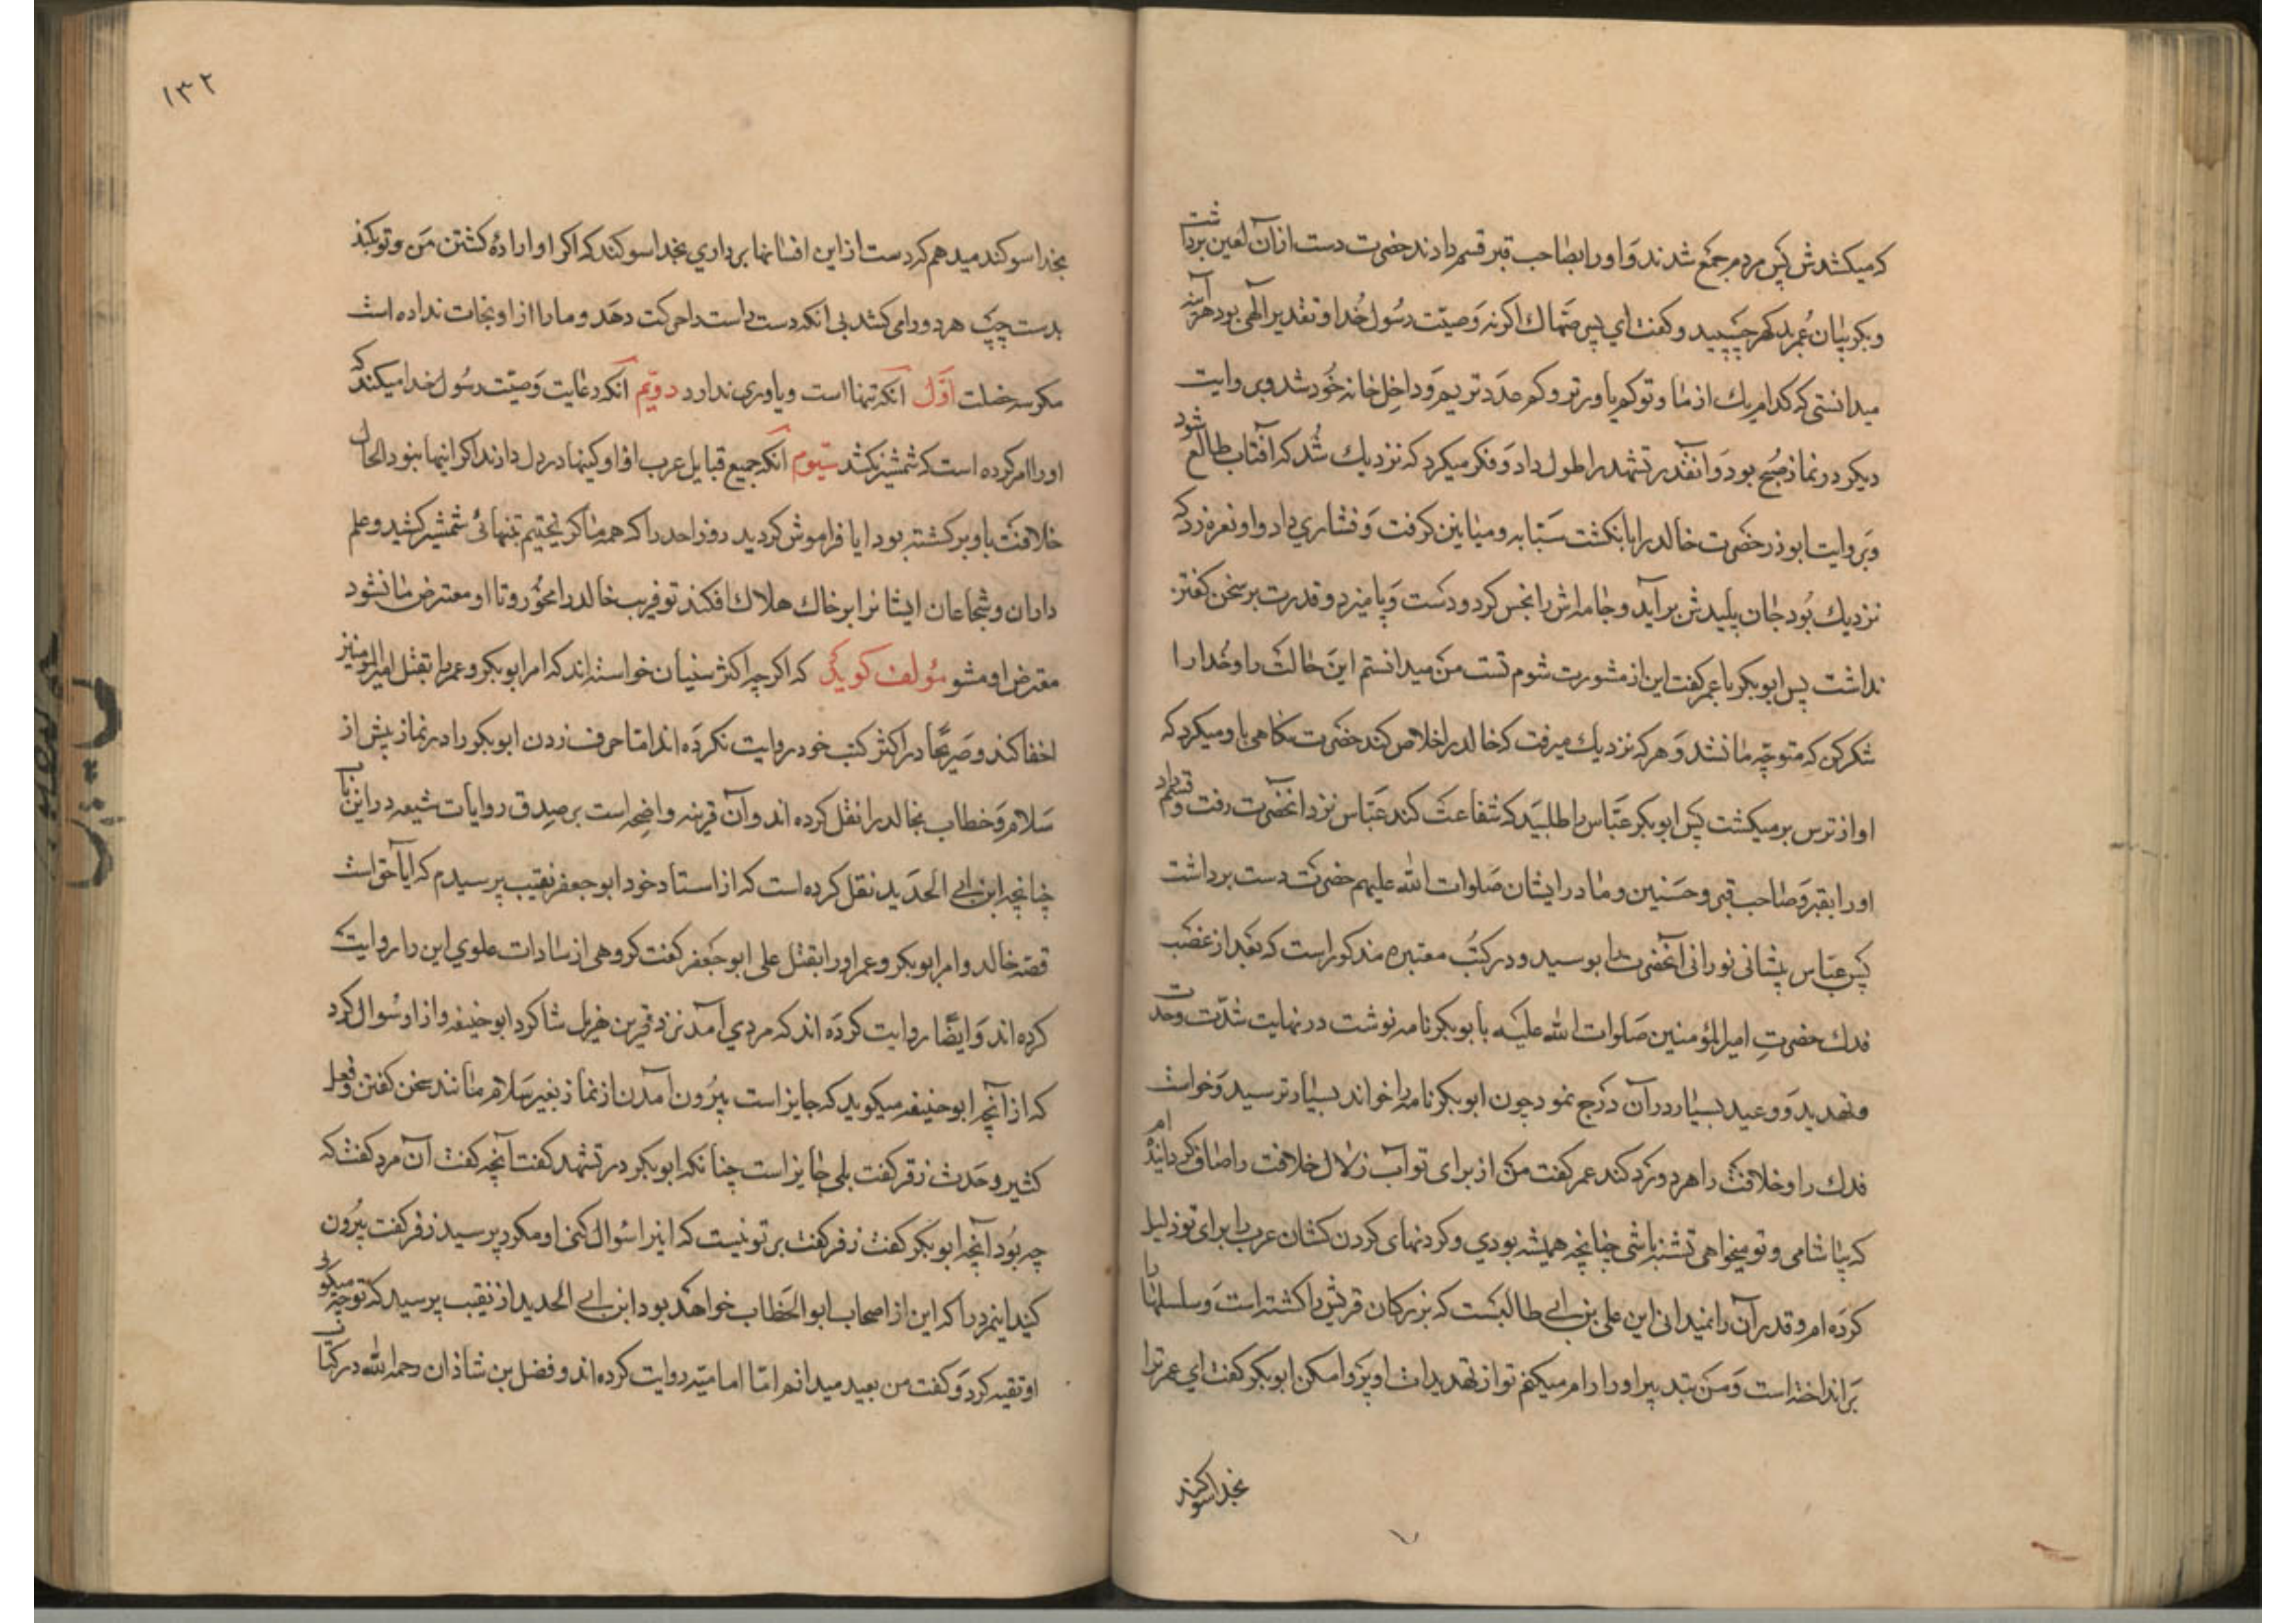 که میکشدش پس مردم جمع شدند و او را بصاحب قبر قسم دادند حضرت دست ازان لعین برداشت
و بگریبان عمر چسپید و گفت ای پسر ضحاک اگر نه وصیّت رسول خدا و تقدیر الهی بود هرآینه
میدانستی که کدام یک از ما و تو کم یاورتر و کم عددتریم و داخل خانه خود شد و بروایت
دیگر در نماز صبح بود و آنقدر تشهد را طول داد و فکر میکرد که نزدیک شد که آفتاب طالع شود
و بروایت ابوذر حضرت خالد را بانگشت سبّابه و میانین گرفت و فشاری داد و او نعره زد که
نزدیک بود جان پلیدش برآید و جامه‌اش را نجس کرد و دست و پا میزد و قدرت بر سخن گفتن
نداشت پس ابوبکر با عمر گفت این از مشورت شوم تست من میدانستم این حالت را و خدا را
شکر کن که متوجه ما نشد و هر که نزدیک میرفت که خالد را خلاص کند حضرت نگاهی باو میکرد که
او از ترس برمیکشت پس ابوبکر عبّاس را طلبید که شفاعت کند عبّاس نزد انحضرت رفت و قسم داد
او را بقبر و صاحب قبر و حسنین و مادر ایشان صلوات الله علیهم حضرت دست برداشت
پس عبّاس پیشانی نورانی آنحضرت را بوسید و در کتب معتبره مذکور است که بعد از غضب
فدک حضرت امیرالمؤمنین صلوات الله علیه بابوبکر نامه نوشت در نهایت شدّت و حدّت
و تهدید و وعید بسیار در آن درج نمود چون ابوبکر نامه را خواند بسیار ترسید و خواست
فدک را و خلافت را هر دو رد کند عمر گفت من از برای تو آب زلال خلافت را صاف کردانیده ام
که بیاشامی و تو میخواهی تشنه باشی چنانچه همیشه بودی و کردنهای کردن کشان عرب را برای تو ذلیل
کرده ام و قدر آن را نمیدانی این علی بن ابی طالبست که بزرکان قریش را کشته است و سلسلهها را
برانداخته است و من بتدبیر او را رام میکنم تو از تهدیدات او پروا مکن ابوبکر گفت ای عمر ترا
بخدا سوکند
۱۳۲
بخدا سوکند میدهم که دست از این افسانها برداری بخدا سوکند که اکر او اراده کشتن من و تو بکند
بدست چپ هر دو را می کشد بی انکه دست راست را حرکت دهد و ما را از او نجات نداده است
مکر سه خصلت اوّل آنکه تنها است و یاوری ندارد دویّم آنکه رعایت وصیّت رسول خدا میکند که
او را امر کرده است که شمشیر نکشد سیّوم آنکه جمیع قبایل عرب از او کینها در دل دارند اکر اینها نبود الحال
خلافت باو برکشته بود ایا فراموش کردید روز احد را که همه ما کریختیم بتنهائی شمشیر کشید و علم
داران و شجاعان ایشانرا بر خاک هلاک افکند تو فریب خالد را مخور و تا او معترض ما نشود
معترض او مشو مؤلف کوید که اکرچه اکثر سنیان خواسته‌اند که امر ابوبکر و عمر را بقتل امیرالمومنین
اخفا کنند و صریحا در اکثر کتب خود روایت نکرده اند امّا حرف زدن ابوبکر را در نماز پیش از
سلام و خطاب بخالد را نقل کرده اند و آن قرینه واضحه است بر صدق روایات شیعه در این باب
چنانچه ابن ابی الحدید نقل کرده است که از استاد خود ابو جعفر نقیب پرسیدم که ایا حق است
قصّه خالد و امر ابوبکر و عمر او را بقتل علی ابو جعفر گفت کروهی از سادات علوی این را روایت
کرده اند و ایضا روایت کرده اند که مردی آمد نزد زفر بن هذیل شاکرد ابوحنیفه و از او سوال کرد
که از آنچه ابوحنیفه میکوید که جایز است بیرون آمدن از نماز بغیر سلام مانند سخن کفتن و فعل
کثیر و حدث زفر کفت بلی جایز است چنانکه ابوبکر در تشهد کفت آنچه کفت آن مرد کفت که
چه بود آنچه ابوبکر کفت زفر کفت بر تو نیست که اینرا سوال کنی او مکرر پرسید زفر کفت بیرون
کنید اینمرد را که این از اصحاب ابوالخطاب خواهد بود ابن ابی الحدید از نقیب پرسید که تو چه میکوئی
او تقیه کرد و گفت من بعید میدانم امّا امامیّه روایت کرده اند و فضل بن شاذان رحمه الله در کتاب